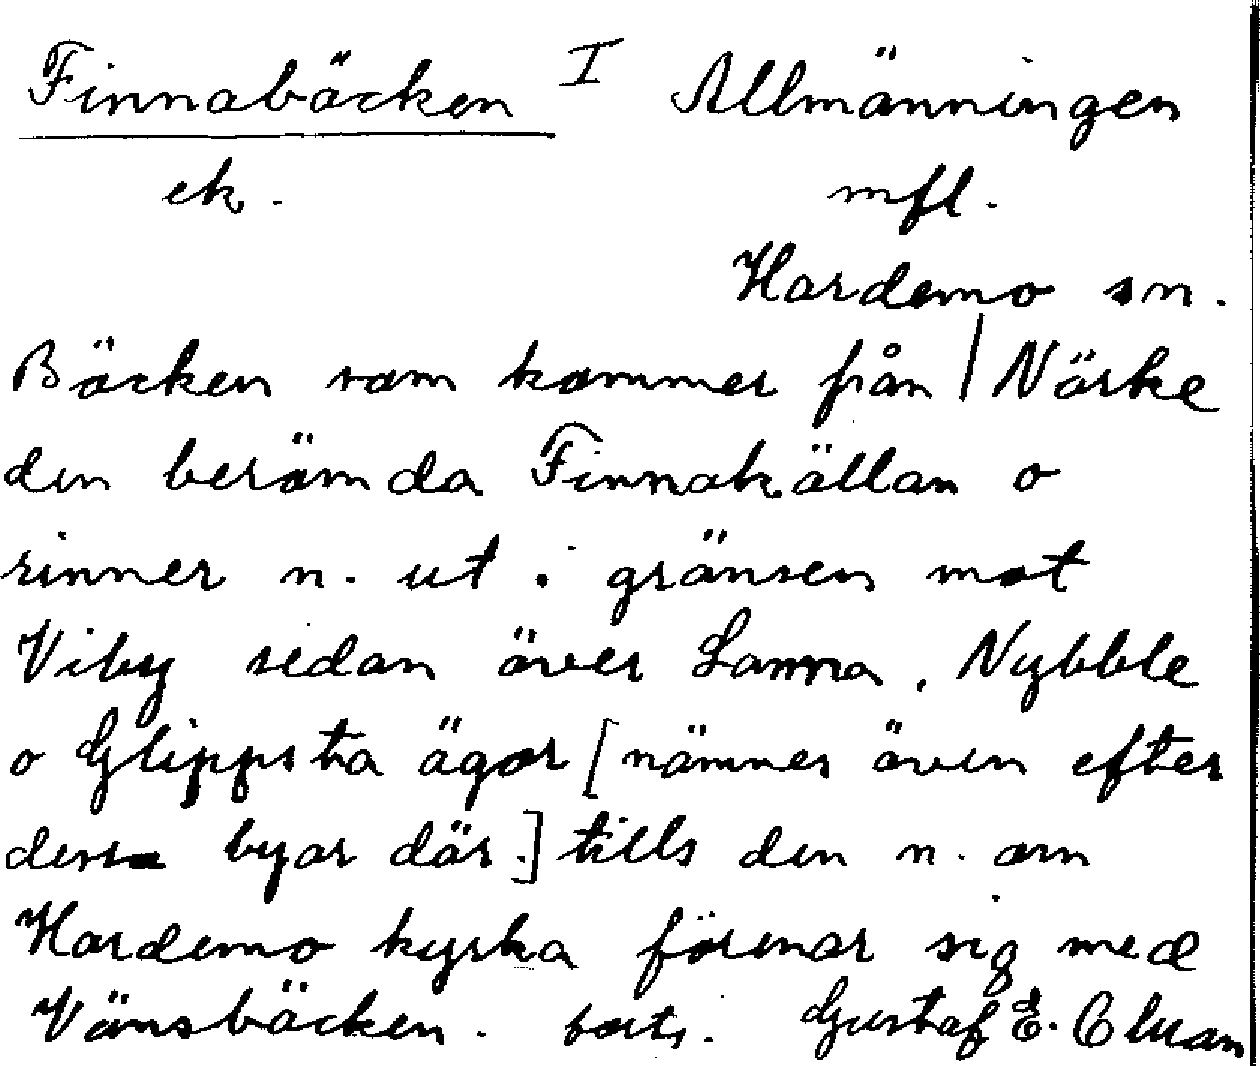 Finnabäcken I Allmänningen
ek. mfl.
Hardemo sn.
Bäcken som kommer från | Närke
den berömda Finnakällan o
rinner n. ut i gränsen mot
Viby sedan över Lanna, Nybble
o Glippsta ägor [nämnes även efter
dessa byar där.] tills den n. om
Hardemo kyrka förenar sig med
Vänsbäcken. forts. Gustaf E.